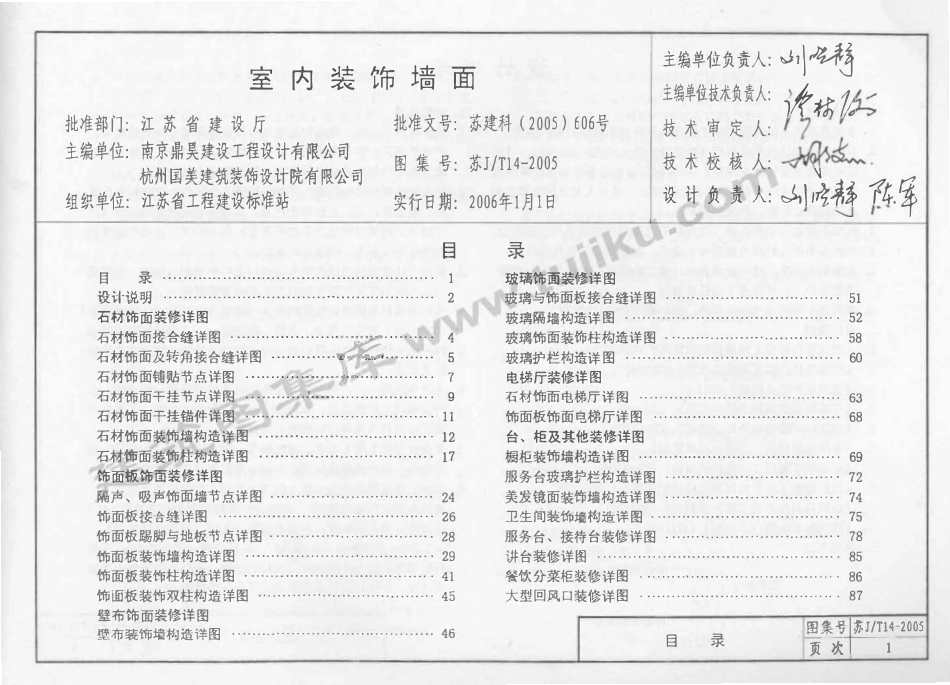 室内装饰墙面
批准部门：江苏省建设厅
主编单位：南京鼎昊建设工程设计有限公司
杭州国美建筑装饰设计院有限公司
组织单位：江苏省工程建设标准站
批准文号：苏建科(2005)606号
图集号：苏J/T14-2005
实行日期：2006年1月1日
主编单位负责人：刘晓静
主编单位技术负责人：
技术审定人：
技术校核人：
设计负责人：刘晓静 陈军
目 录
目 录 1
设计说明 2
石材饰面装修详图
石材饰面接合缝详图 4
石材饰面及转角接合缝详图 5
石材饰面铺贴节点详图 7
石材饰面干挂节点详图 9
石材饰面干挂锚件详图 11
石材饰面装饰墙构造详图 12
石材饰面装饰柱构造详图 17
饰面板饰面装修详图
隔声、吸声饰面墙节点详图 24
饰面板接合缝详图 26
饰面板踢脚与地板节点详图 28
饰面板装饰墙构造详图 29
饰面板装饰柱构造详图 41
饰面板装饰双柱构造详图 45
壁布饰面装修详图
壁布装饰墙构造详图 46
玻璃饰面装修详图
玻璃与饰面板接合缝详图 51
玻璃隔墙构造详图 52
玻璃饰面装饰柱构造详图 58
玻璃护栏构造详图 60
电梯厅装修详图
石材饰面电梯厅详图 63
饰面板饰面电梯厅详图 68
台、柜及其他装修详图
橱柜装饰墙构造详图 69
服务台玻璃护栏构造详图 72
美发镜面装饰墙构造详图 74
卫生间装饰墙构造详图 75
服务台、接待台装修详图 78
讲台装修详图 85
餐饮分菜柜装修详图 86
大型回风口装修详图 87
目 录
图集号 苏J/T14-2005
页次 1
建筑图集库 www.tujiku.com